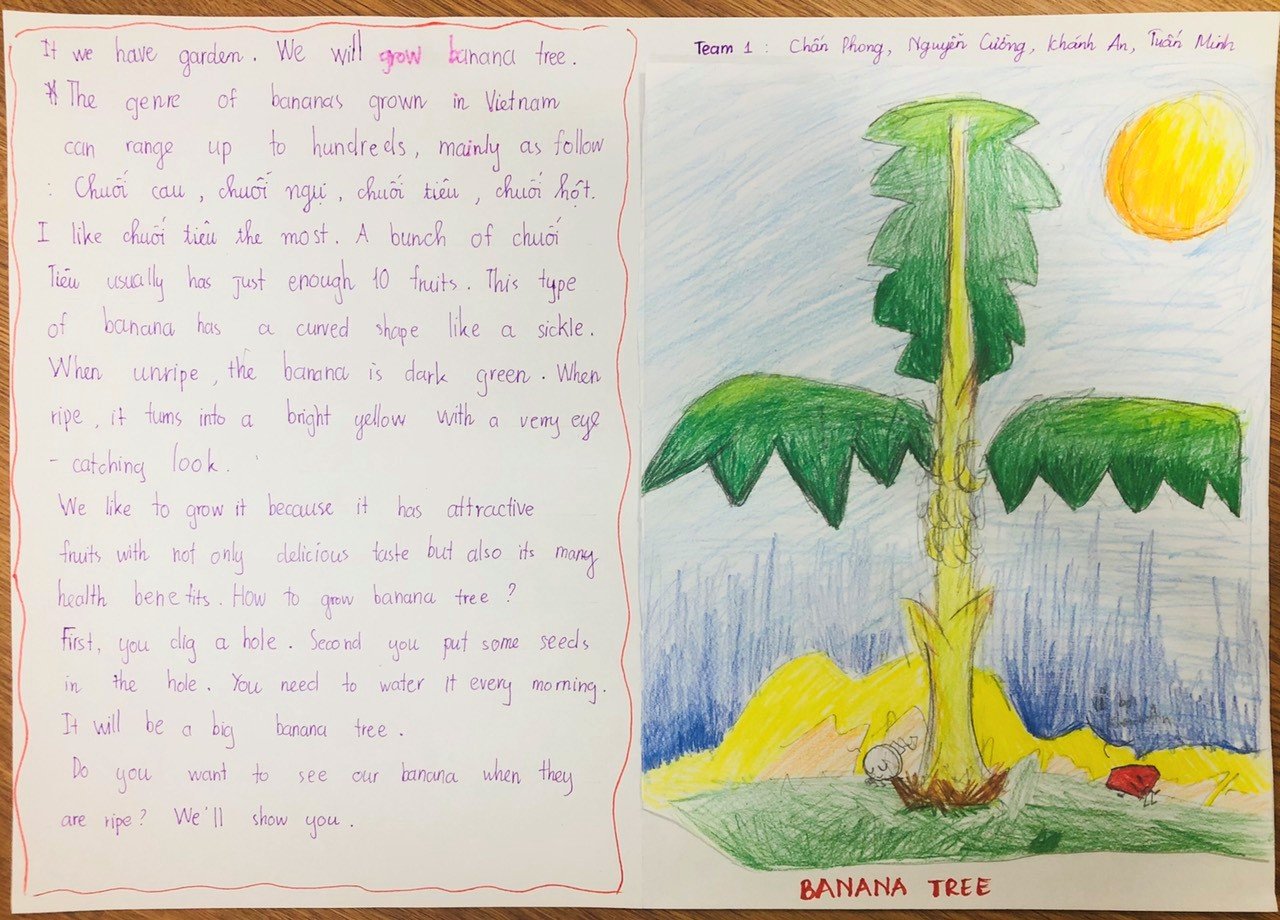 It we have garden. We will grow banana tree.
* The genre of bananas grown in Vietnam
can range up to hundreds, mainly as follow
: Chuối cau, chuối ngự, chuối tiêu, chuối hột.
I like chuối tiêu the most. A bunch of chuối
Tiêu usually has just enough 10 fruits. This type
of banana has a curved shape like a sickle.
When unripe, the banana is dark green. When
ripe, it turns into a bright yellow with a verry eye
- catching look.
We like to grow it because it has attractive
fruits with not only delicious taste but also its many
health benefits. How to grow banana tree?
First, you dig a hole. Second you put some seeds
in the hole. You need to water it every morning.
It will be a big banana tree.
Do you want to see our banana when they
are ripe? We'll show you.
Team 1: Chấn Phong, Nguyễn Cường, Khánh An, Tuấn Minh
BANANA TREE